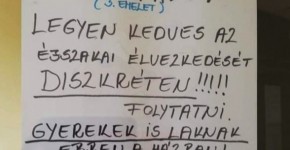 (3. EMELET)
LEGYEN KEDVES AZ
ÉJSZAKAI ÉLVEZKEDÉSÉT
DISZKRÉTEN !!!!!
FOLYTATNI.
GYEREKEK IS LAKNAK
EBBEN A HÁZBAN!